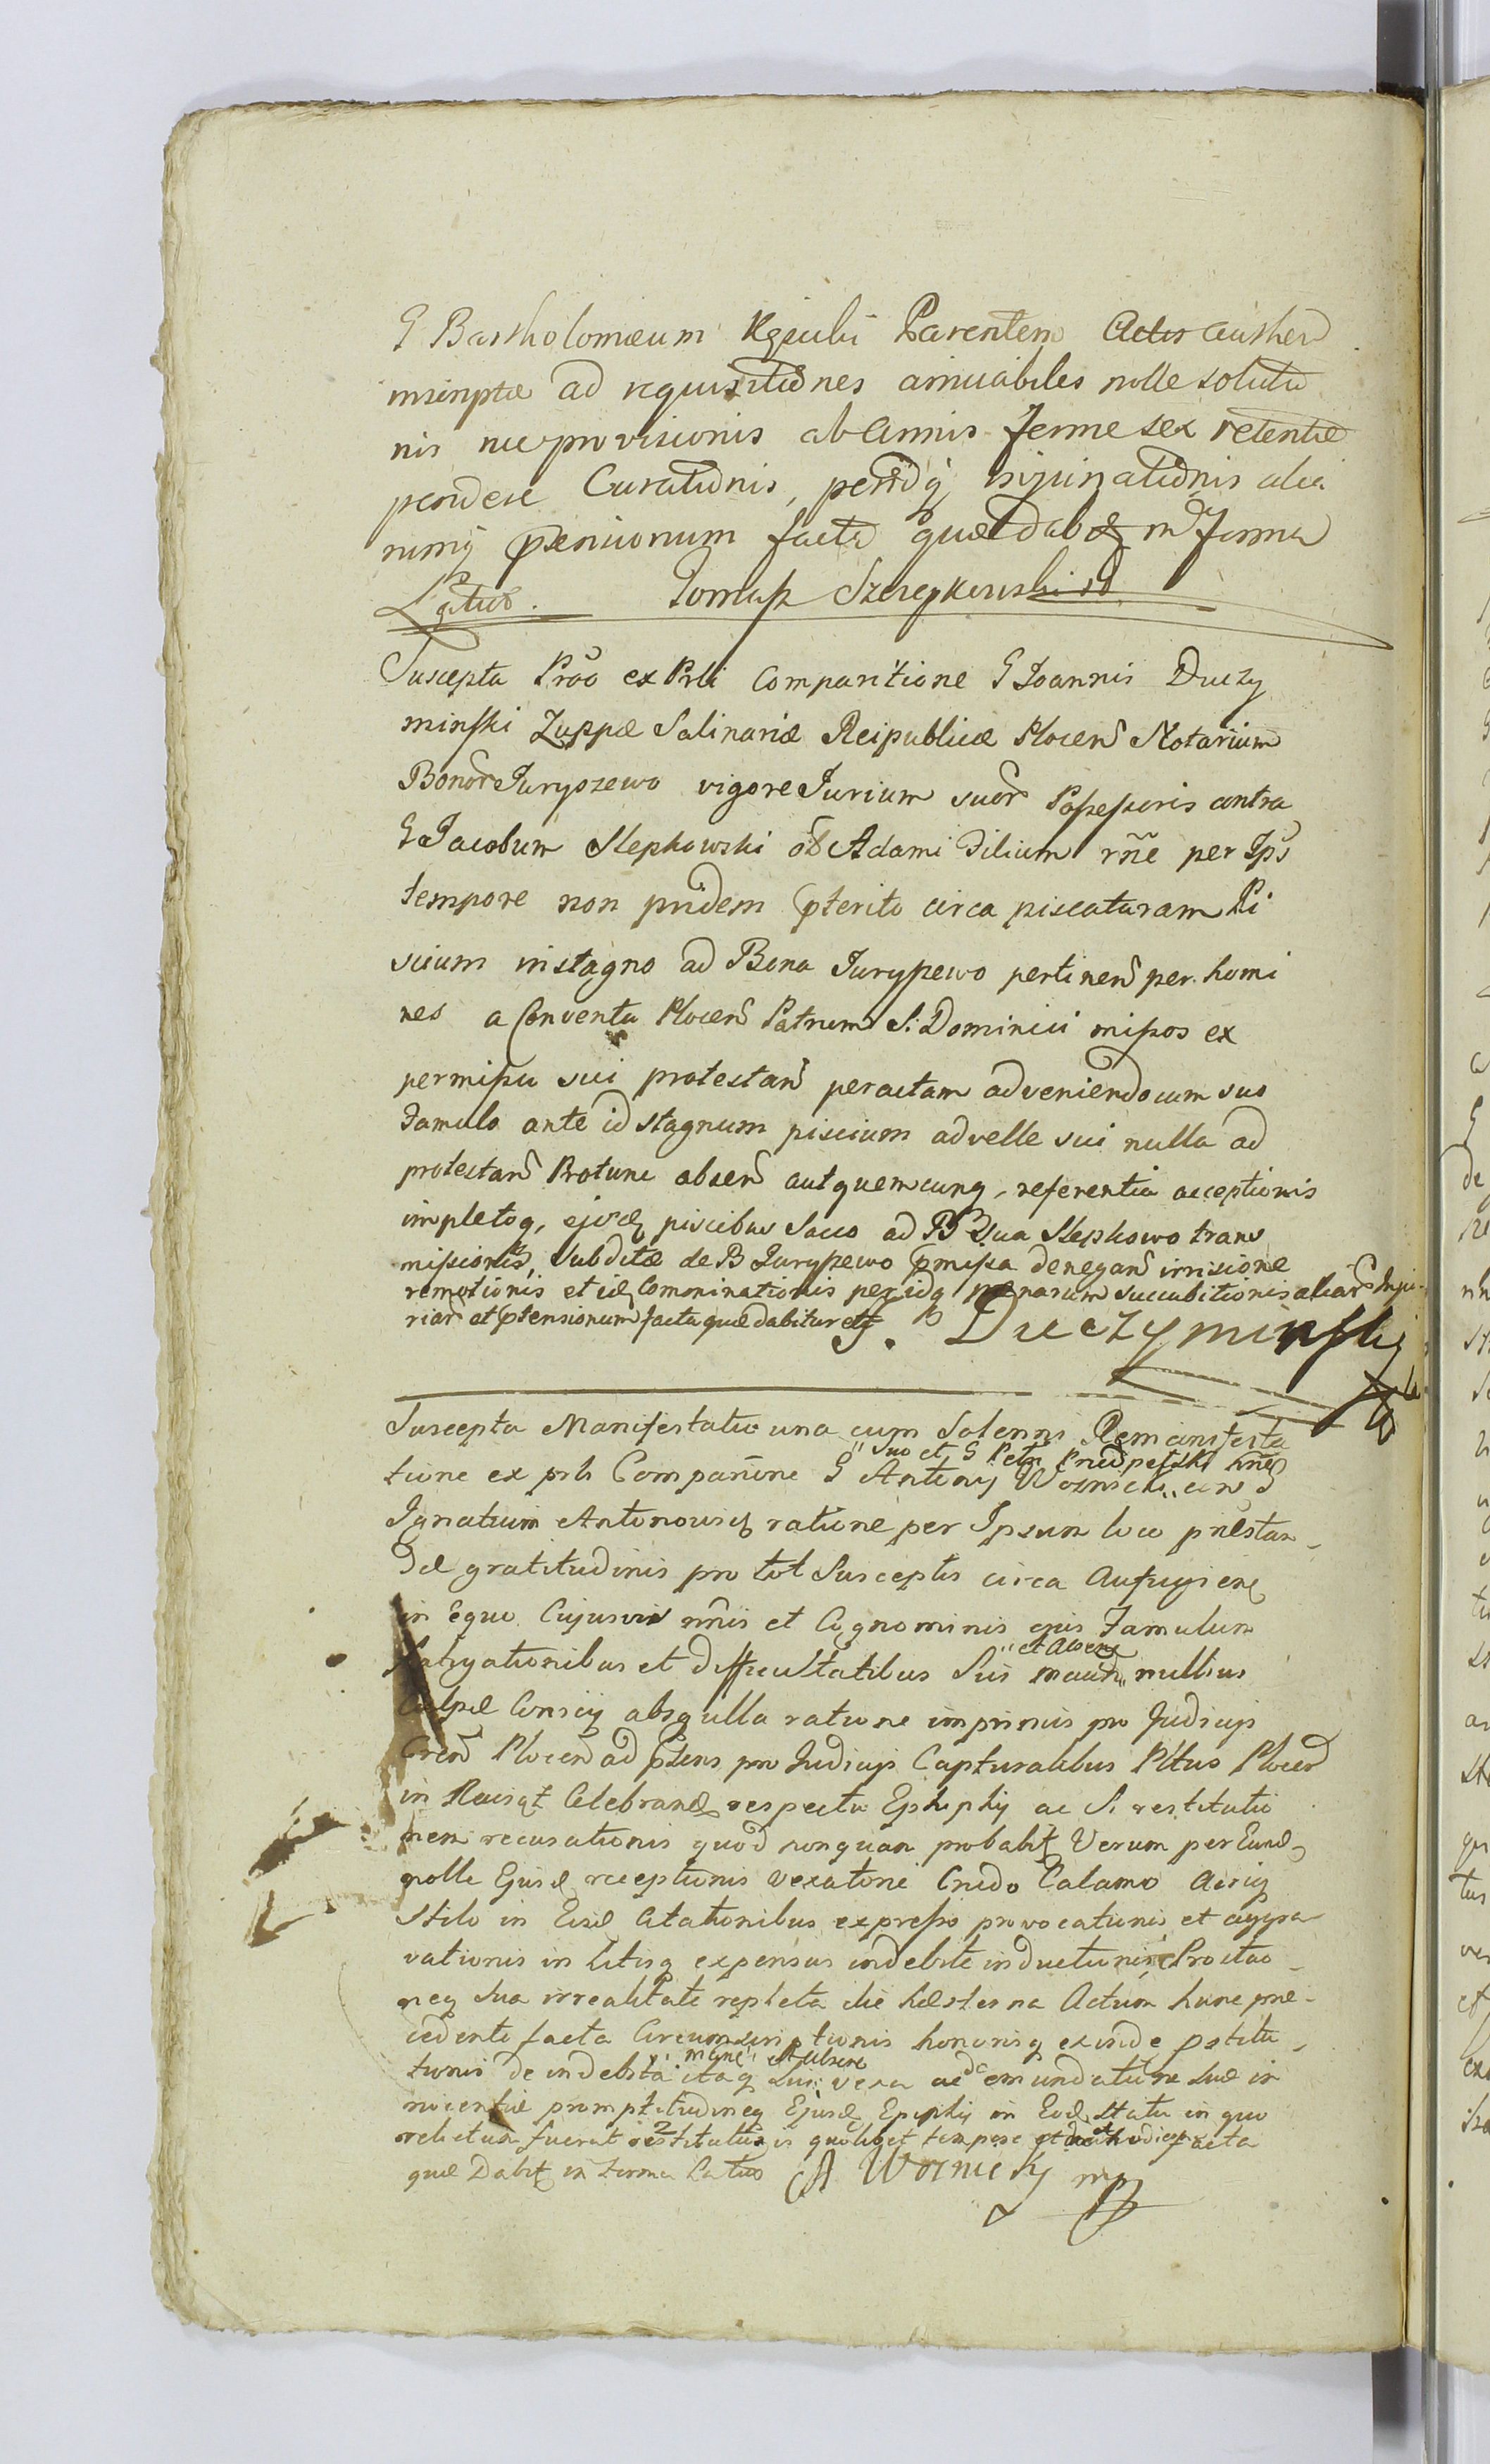 G Bartholomæum Parentem Actis authen
inscriptæ ad requisitiones amicabiles nolle solutio
nis nec provisionis ab Annis ferme sex retentæ
pendere Curationis, peridq alia
rumq ptensionum facta quæ dab in Forma
Latius. Tomasz Szczepkowski
Suscepta Prõo ex Prli Comparitione G Joannis Duczy
minski Zuppæ Salinariæ Reipublicæ Plocen Notarium
Bonor Juryszewo vigore Jurium suor Possessoris contra
G Jacobum Slepkowski oB Adami Filium rñe per Ips
tempore non pridem pterito circa piscaturam Pi
scium in stagno ad Bona Juryszewo pertinen per homi
nes a Conventu Plocen Patrum S: Dominici missos ex
permissu sui protestan peractam adveniendo cum suo
Famulo ante id stagnum piscium ad velle sui nulla ad
protestan Protunc absen aut quemcunq, referentia acceptionis
impletoq, ejusd piscibus Sacco ad B sua Slepkowo trans
missionis, subditæ de B Juryszewo pmissa denegan irrisione
remotionis et id Comminationis peridq pænarum succubitionis aliar Inju
riar et ptensionum facta quæ dabitur etc J. Duczyminski
Suscepta Manifestatio una cum Solenni Remanifesta
" suo et G Petri hñe
tione ex prli Comparitione G Antonij Woznicki "
Ignatium ratione per Ipsum loco præstan
dæ gratitudinis pro tot Susceptis circa Aufugien
in Equo Cujusvis nñis et Cognominis ejus Famulum
" et Absen
fatigationibus et difficultatibus Sui " nullius
Culpæ Conscij absq ulla ratione imprimis pro Judicijs
Plocen ad ptens pro Judicijs Capturalibus Pltus Plocen
in Celebrand respectu Ephiphij ac S. restitutio
nem recusationis quod nonquam probabit Verum per Eund
nolle Ejusd receptionis vexatorie Crudo Calamo Acriq
Stilo in Eisd Citationibus expresso provocationis et aggra
vationis in litisq expensas indebite inductionis
neq sua irrealitate repleta die hæsterna Actum hunc præ
cedente facta Circumscriptionis honorisq exinde pstitu
tionis de indebita itaq Sui vexa ac de emundatione suæ in
nocentiæ promptitudineq Ejusd Epiphij in Eod Statu in quo
relictum fuerat restitutionis quolibet tempore facta
quæ Dabit in forma Latius A Woznicky mp